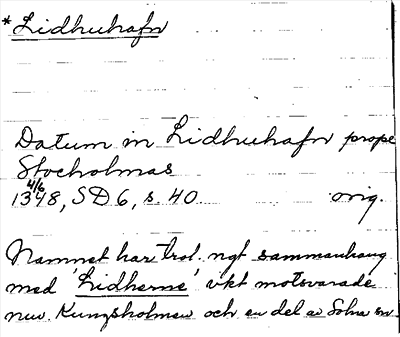 *Lidhuhafn
Datum in Lidhuhafn prope
Stocholmas
4/6
1348, SD 6, s. 40. orig.
Namnet har trol. ngt sammanhang
med 'Lidherne' vkt motsvarade
nuv. Kungsholmen och en del av Solna sn.